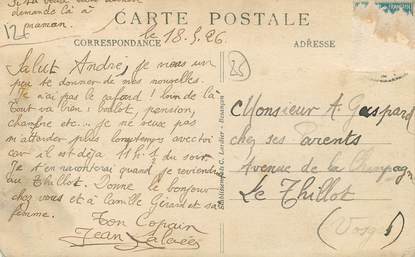 demande là à
maman.
12f
CARTE POSTALE
le 18.9.26
CORRESPONDANCE
ADRESSE
Salut André, je viens un
peu te donner de mes nouvelles.
Je n'ai pas le cafard! loin de là
Tout va bien: boulot, pension,
chambre etc... je ne veux pas
m'attarder plus longtemps avec toi
car il est déjà 11h ½ du soir,
Je t'en raconterai quand je reviendrai
au Thillot. Donne le bonjour
chez vous et à Camille Gérard et sa
femme.
Ton Copain
Jean
25
Monsieur A. Gaspard
chez ses Parents
Avenue de la Champagne
Le Thillot
(Vosges)